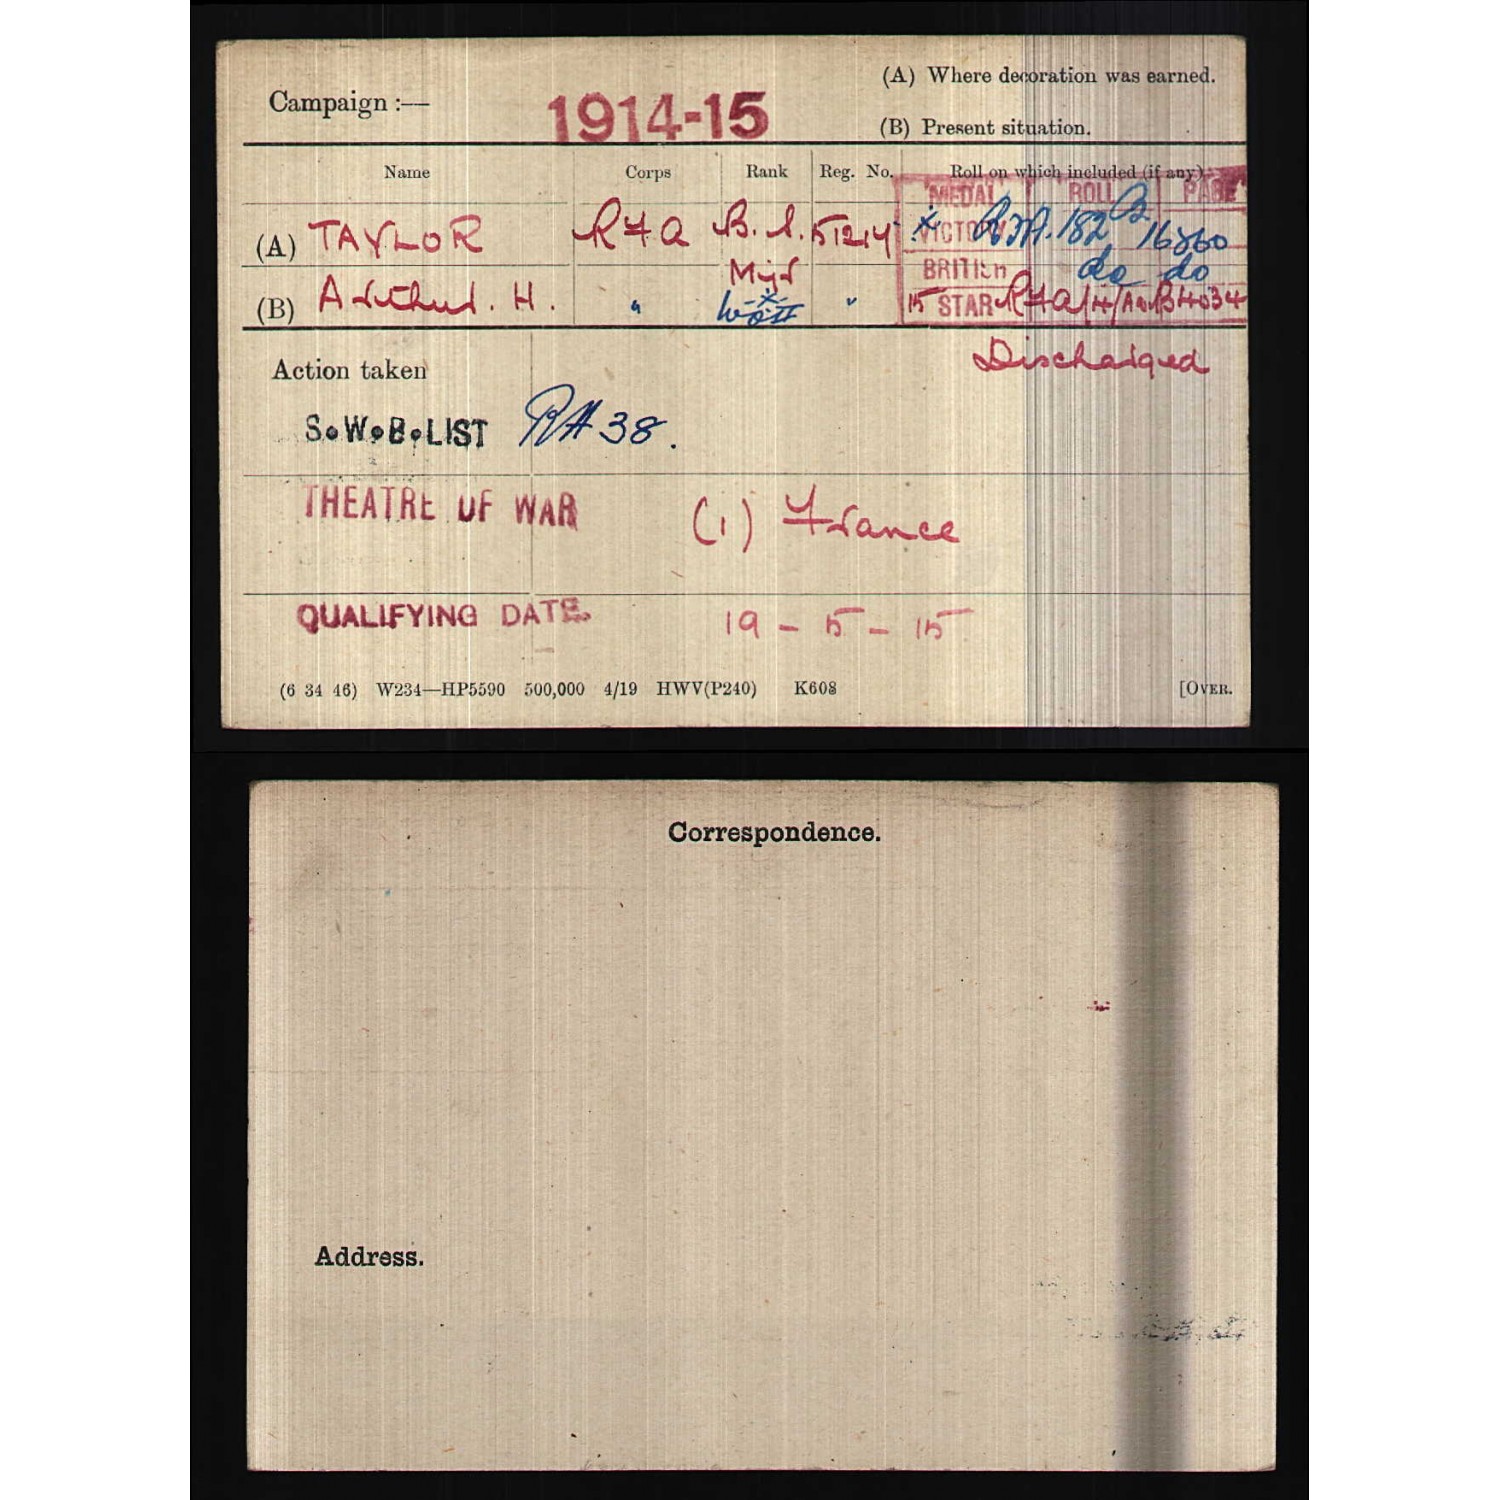 Campaign :—
1914-15
(A) Where decoration was earned.
(B) Present situation.
Name Corps Rank Reg. No. Roll on which included (if any)
MEDAL ROLL PAGE
(A) TAYLOR RFA B.S. 51214 * VICTORY RFA.182B 16860
Mjr BRITISH do do
(B) Arthur. H. " -x- WOII " 15 STAR RFA/14/A&B4034
Discharged
Action taken
S.W.B.LIST RA 38.
THEATRE OF WAR (1) France
QUALIFYING DATE. 19 - 5 - 15
(6 34 46) W234—HP5590 500,000 4/19 HWV(P240) K608 [OVER.
Correspondence.
Address.